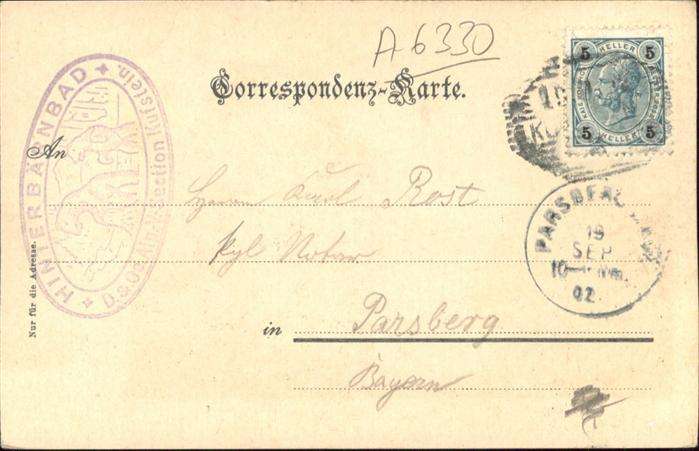 A 6330
Correspondenz-Karte.
5 HELLER 5
5 HELLER 5
HINTERBÄRENBAD
D.&Oe. Alp. Section Kufstein.
An
Herrn Karl Rost
kgl Notar
PARSBERG
19
SEP
10
02
in Parsberg
Bayern
Nur für die Adresse.